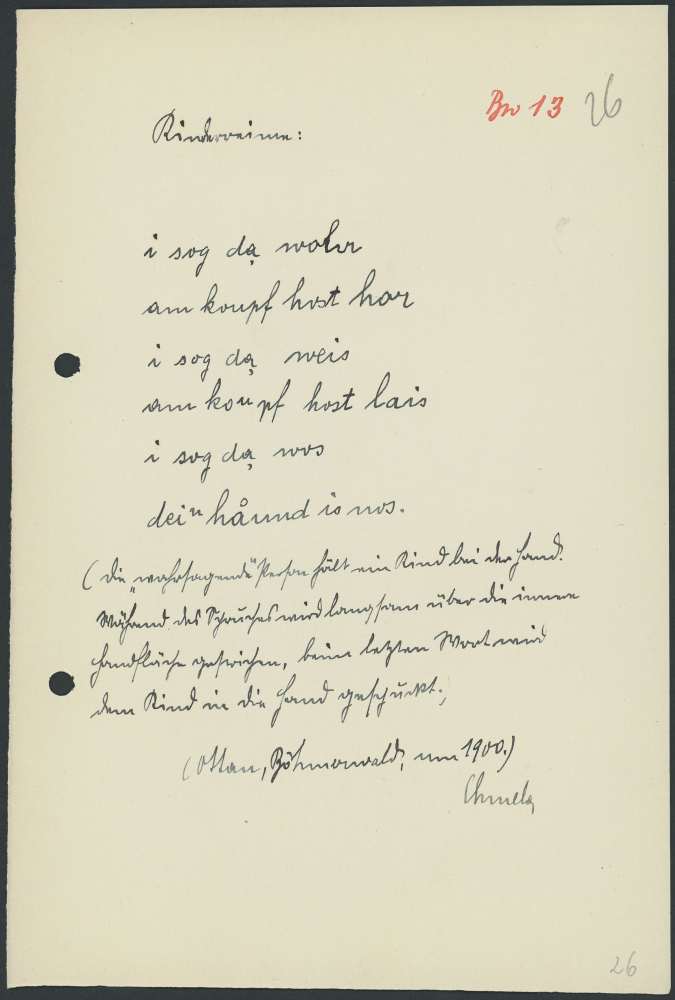 Bw 13 26
Kinderreime:
i sog dą wohr
am koupf host hor
i sog dą weis
am koupf host lais
i sog dą wos
deiⁿ håund is nos.
(Die „wahrsagende" Person hält ein Kind bei der Hand.
Während des Spruches wird langsam über die innere
Handfläche gestrichen, beim letzten Wort wird
dem Kind in die Hand gespuckt.)
(Ottau, Böhmerwald, um 1900.)
Chmela
26